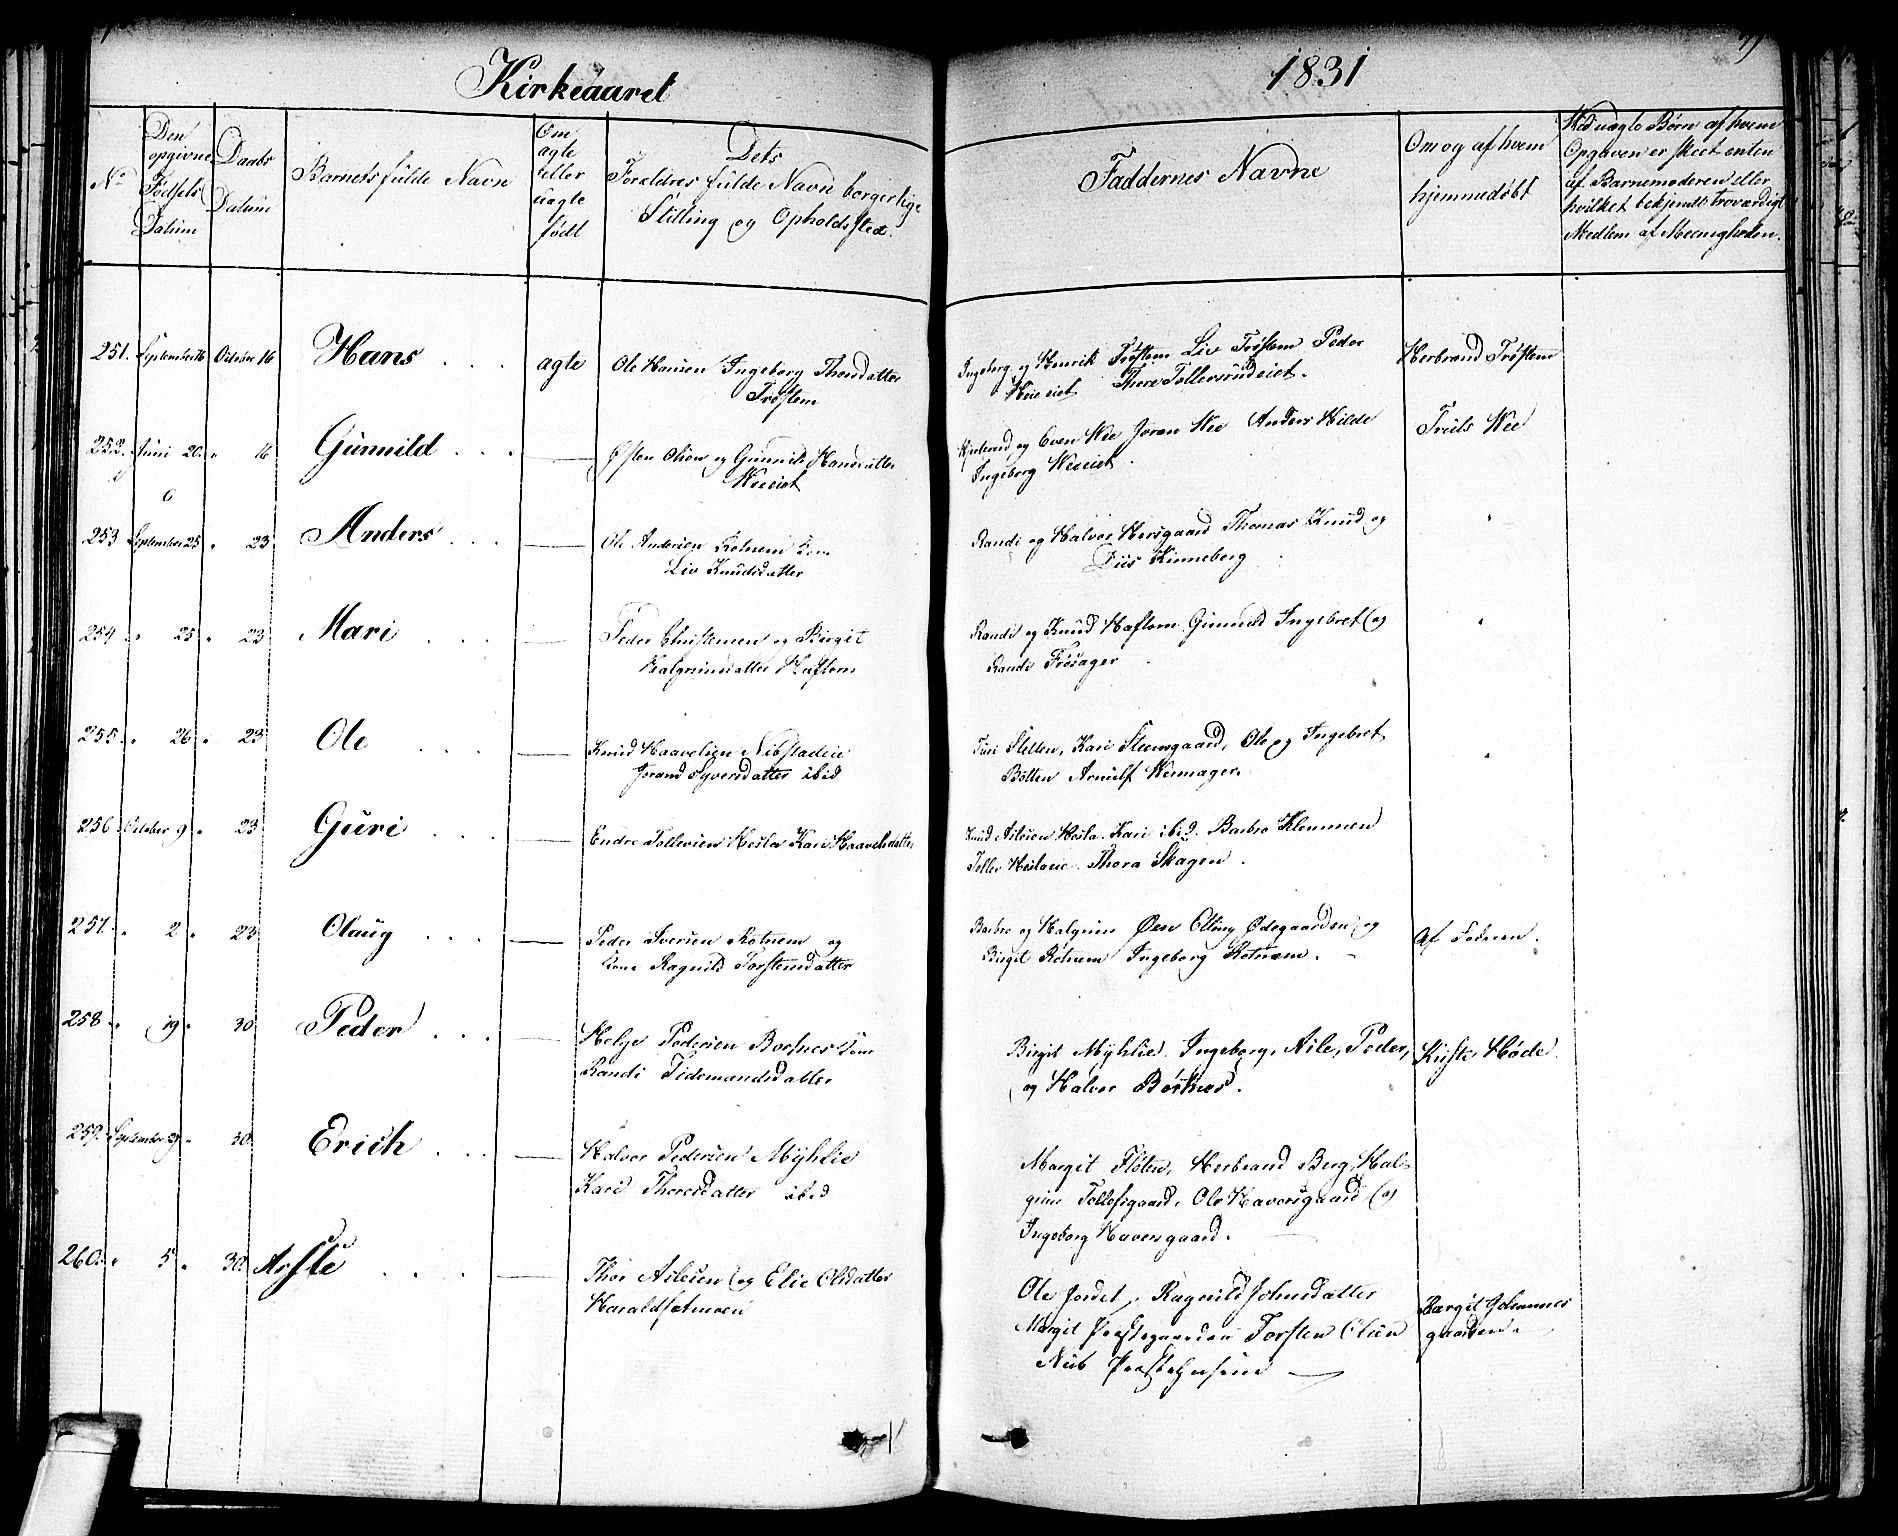 Kirkeaaret
1831
No
Den
opgivne
Fødsels
Datum
Daabs
Datum
Barnets fulde Navn
Om
ægte
eller
uægte
født
Dets
Forældres fulde Navn borgerlige
Stilling og Opholdssted.
Faddernes Navne
Om og af hvem
hjemmedøbt
Ved uægte Børn af hvem
Opgaven er skeet enten
af Barnemoderen eller
hvilket bekjendt troværdigt
Medlem af Meenigheden.
251. September 16 October 16 Hans . . . ægte Ole Hansen Ingeborg Thorsdatter
Trøstem
Ingeborg og Henrik Trøstem Liv Trøstem Peder
Thore Tollevsrudeiet.
Herbrand Trøstem
252. Juni 20. " 16 Gunnild . . . — Østen Olsen og Gunnild Hansdatter
Weeiet
og Even Wee Joran Wee Anders Hilde
Ingeborg Weeeiet.
Truls Wee
253 September 25 " 23 Anders . . . — Ole Andersen Rotnem Kone
Liv Knudsdatter
Randi og Halvor Hersgaard Thomas Knud og
Kinneberg
"
254 " 25 " 23 Mari . . . — Peder Christensen og Birgit
Halgrimsdatter Haftorn
Randi og Knud Haftorn Gunnild Ingebret og
Randi Frøsager
"
255. " 26 " 23 Ole . . . — Knud Haavelsen Nibstadeie
Jorand Syversdatter ibid
Turi Sletten, Kari Steensgaard, Ole og Ingebret
Botten Arnulf Wermager.
"
256 October 9 " 23 Guri . . . — Endre Tollevsen Hesla Kari Haavelsdatter
Knud Aslesen Hesla. Kari ibid. Barbro Klemmen
Tollev Heslaeie. Thora Skagen.
257. " 2 " 23 Olaug . . . — Peder Iversen Rotnem og
Kone Ragnild Torstensdatter
Barbro og Halgrim Øen Elling Ødegaarden og
Birgit Rotnem Ingeborg Rotnem.
Af Faderen.
258 " 19 " 30 Peder . . . Helge Pedersen Børtnes Kone
Randi Tidemandsdatter
Birgit Myhlie. Ingeborg, Asle, Peder,
og Halvor Børtnes.
Høde
259. September 29 " 30. Erich . . . — Halvor Pedersen Myhlie
Kari Thoresdatter ibid
Margit Fløten, Herbrand Berg, Hal-
grim Tollefsgaard, Ole Haversgaard og
Ingeborg Haversgaard.
260. " 5 " 30. Asle . . . — Thor Aslesen og Elie Olsdatter
Haraldsetmoen
Ole Jordet, Ragnild Johnsdatter
Margit Præstegaarden Torsten Olsen
Nub
Bergit Johannes
gaarden.